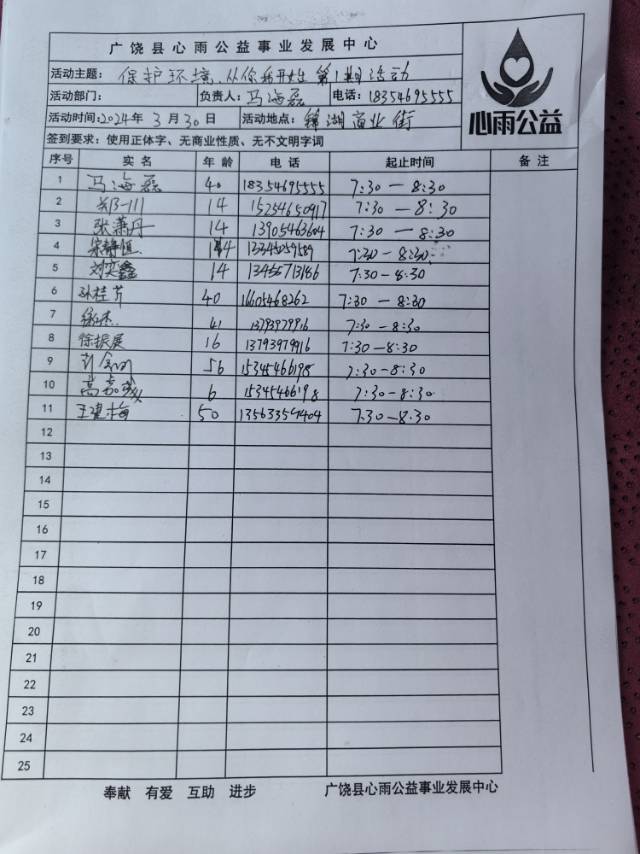 广饶县心雨公益事业发展中心
活动主题: 保护环境、从你我开始 第1期活动
活动部门: 负责人: 马海磊 电话: 18354695555
活动时间: 2024年 3月 30日 活动地点: 锦湖商业街
签到要求: 使用正体字、无商业性质、无不文明字词
心雨公益
序号 实名 年龄 电话 起止时间 备注
1 马海磊 40 18354695555 7:30-8:30
2 14 15254650917 7:30-8:30
3 张萧丹 14 13905463604 7:30-8:30
4 宋静恒 14 7:30-8:30
5 刘奕鑫 14 7:30-8:30
6 孙桂芹 40 16605468262 7:30-8:30
7 41 13793979916 7:30-8:30
8 徐振展 16 13793979916 7:30-8:30
9 56 15345466198 7:30-8:30
10 高嘉 6 15345466198 7:30-8:30
11 王建梅 50 7:30-8:30
12
13
14
15
16
17
18
19
20
21
22
23
24
25
奉献 有爱 互助 进步 广饶县心雨公益事业发展中心